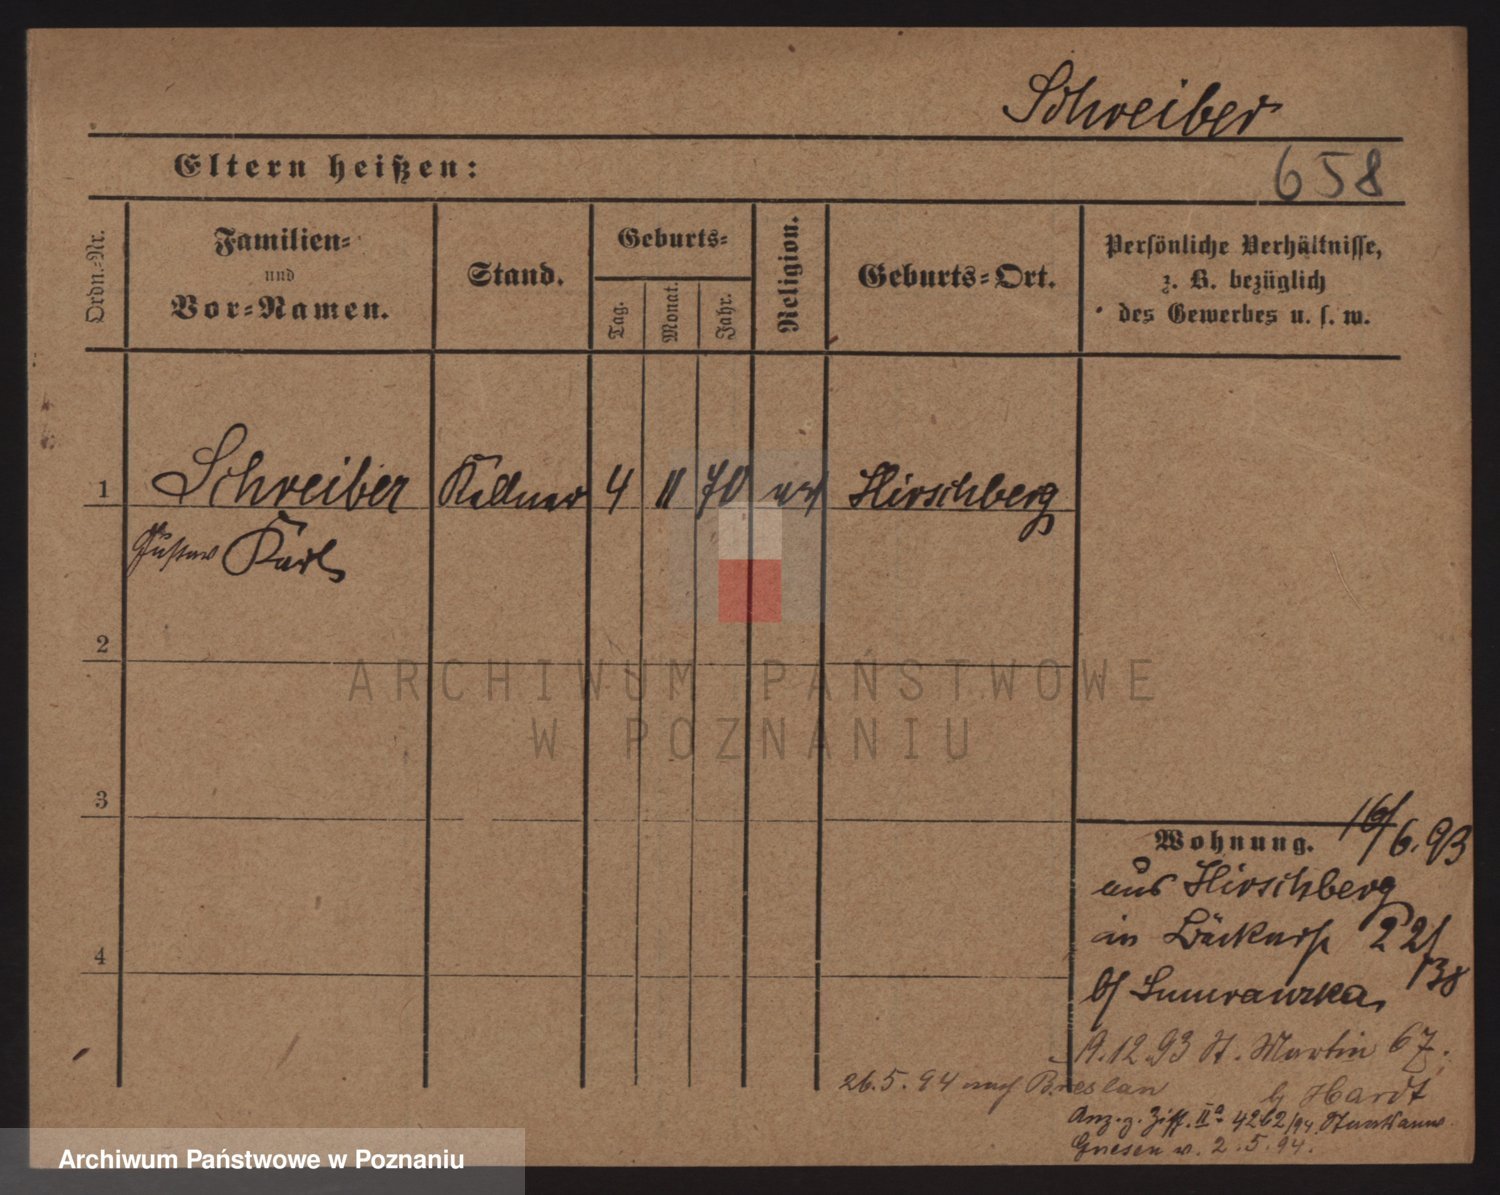 Schreiber
Eltern heißen:
658
Ordn.-Nr.
Familien-
und
Vor-Namen.
Stand.
Geburts-
Tag.
Monat.
Jahr.
Religion.
Geburts-Ort.
Persönliche Verhältnisse,
z. B. bezüglich
des Gewerbes u. s. w.
1 Schreiber Kellner 4 11 70 Hirschberg
Gustav Karl
2
3
4
ARCHIWUM PAŃSTWOWE
W POZNANIU
Wohnung. 16/6.93
aus Hirschberg
in 22/
138
b/
19.12.93 St. Martin 67.
b/ Hardt
26.5.94 nach Breslau
Anz. z. Ziff. IIa 4262/94
Gnesen v. 2.5.94.
Archiwum Państwowe w Poznaniu